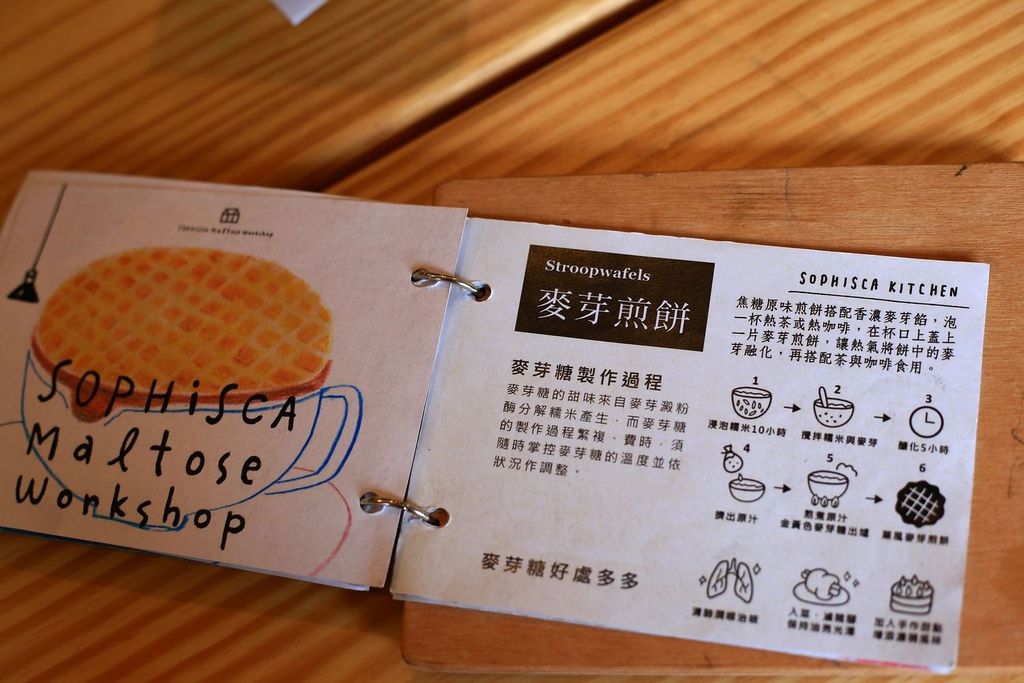 SOPHISCA Maltose Workshop
SOPHISCA
Maltose
Workshop
Stroopwafels
麥芽煎餅
SOPHISCA KITCHEN
焦糖原味煎餅搭配香濃麥芽餡，泡
一杯熱茶或熱咖啡，在杯口上蓋上
一片麥芽煎餅，讓熱氣將餅中的麥
芽融化，再搭配茶與咖啡食用。
麥芽糖製作過程
麥芽糖的甜味來自麥芽澱粉
酶分解糯米產生，而麥芽糖
的製作過程繁複、費時，須
隨時掌控麥芽糖的溫度並依
狀況作調整。
1
浸泡糯米10小時
2
攪拌糯米與麥芽
3
醣化5小時
4
擠出原汁
5
熬煮原汁
金黃色麥芽糖出爐
6
麥芽煎餅
麥芽糖好處多多
入菜
保持油亮光澤
加入手作甜點
增添濃稠風味